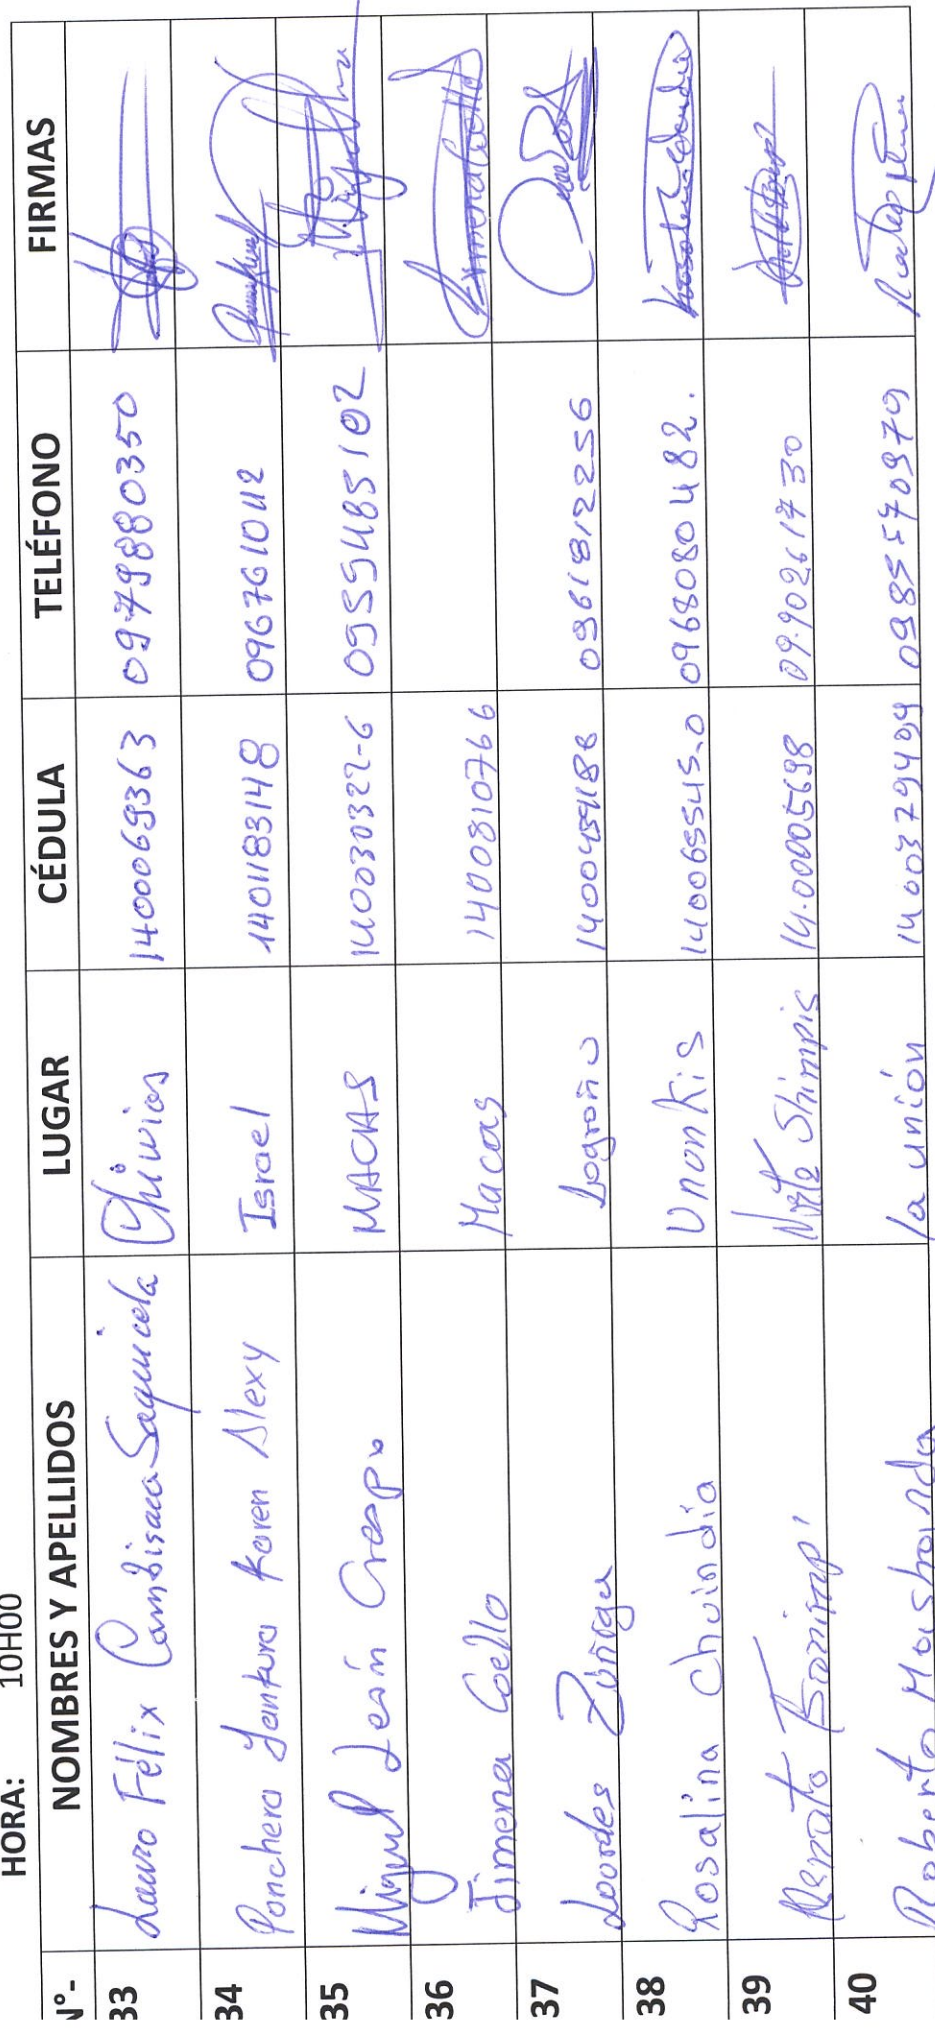 HORA: 10H00
N°- NOMBRES Y APELLIDOS LUGAR CÉDULA TELÉFONO FIRMAS
33 Lauro Félix Cambisaca Saquicela Chivias 1400069363 0979880350
34 Ponchera Jantura Karen Alexy Israel 1401183148 0967610112
35 Miguel León Crespo MACAS 140030322-6 0959485102
36 Jimena Coello Macas 1400810766
37 Lourdes Zúñiga Logroño 1400459188 0961812256
38 Rosalina Chuindia Unonkis 140065545-0 0968080482.
39 Renato Tsorimp Shimpis 14.00005698
40 Roberto la unión 1400379409 0985570979